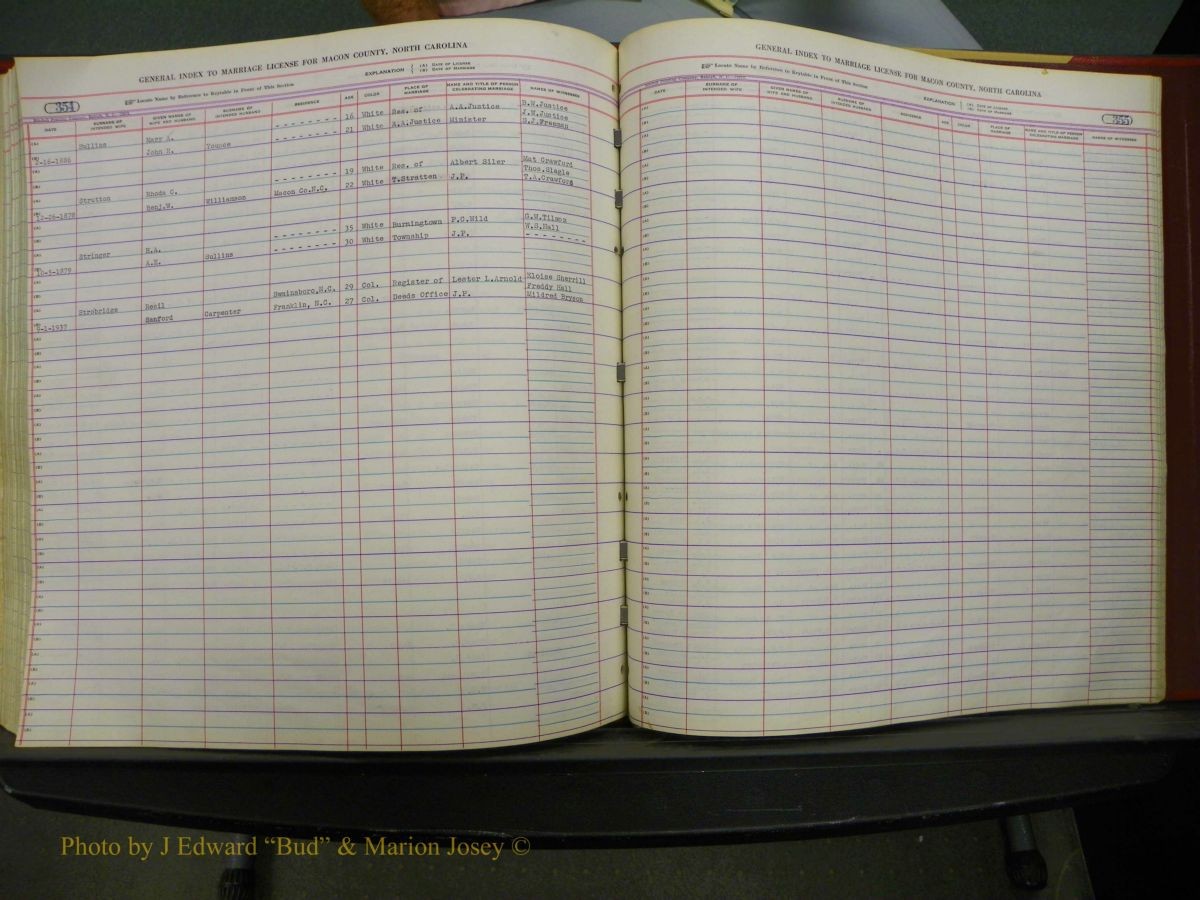 GENERAL INDEX TO MARRIAGE LICENSE FOR MACON COUNTY, NORTH CAROLINA
354
Locate Name by Reference to Keytable in Front of This Section
EXPLANATION { (A) DATE OF LICENSE
(B) DATE OF MARRIAGE
DATE SURNAME OF INTENDED WIFE GIVEN NAMES OF WIFE AND HUSBAND SURNAME OF INTENDED HUSBAND RESIDENCE AGE COLOR PLACE OF MARRIAGE NAME AND TITLE OF PERSON CELEBRATING MARRIAGE NAMES OF WITNESSES
(A) Sullins Mary A. - - - - - - - - 16 White Res. of A.A.Justice B.H.Justice
J.M.Justice
(B) 2-16-1886 John H. Younce - - - - - - - - 21 White A.A.Justice Minister S.J.Freeman
(A) Stratton Rhoda C. - - - - - - - - 19 White Res. of Albert Siler Mat Crawford
Thos.Slagle
(B) 12-26-1878 Benj.W. Williamson Macon Co.N.C. 22 White T.Stratten J.P. T.A.Crawford
(A) Stringer H.A. - - - - - - - - 35 White Burningtown P.C.Wild
W.S.Hall
(B) 10-5-1879 Sullins - - - - - - - - 30 White Township J.P. - - - - - - - -
(A) Strobridge Swainsboro,N.C. 29 Col. Register of Lester L.Arnold Eloise Sherrill
Freddy Hall
(B) Sanford Carpenter Franklin, N.C. 27 Col. Deeds Office J.P. Mildred Bryson
GENERAL INDEX TO MARRIAGE LICENSE FOR MACON COUNTY, NORTH CAROLINA
355
Locate Name by Reference to Keytable in Front of This Section
EXPLANATION { (A) DATE OF LICENSE
(B) DATE OF MARRIAGE
DATE SURNAME OF INTENDED WIFE GIVEN NAMES OF WIFE AND HUSBAND SURNAME OF INTENDED HUSBAND RESIDENCE AGE COLOR PLACE OF MARRIAGE NAME AND TITLE OF PERSON CELEBRATING MARRIAGE NAMES OF WITNESSES
Photo by J Edward “Bud” & Marion Josey ©